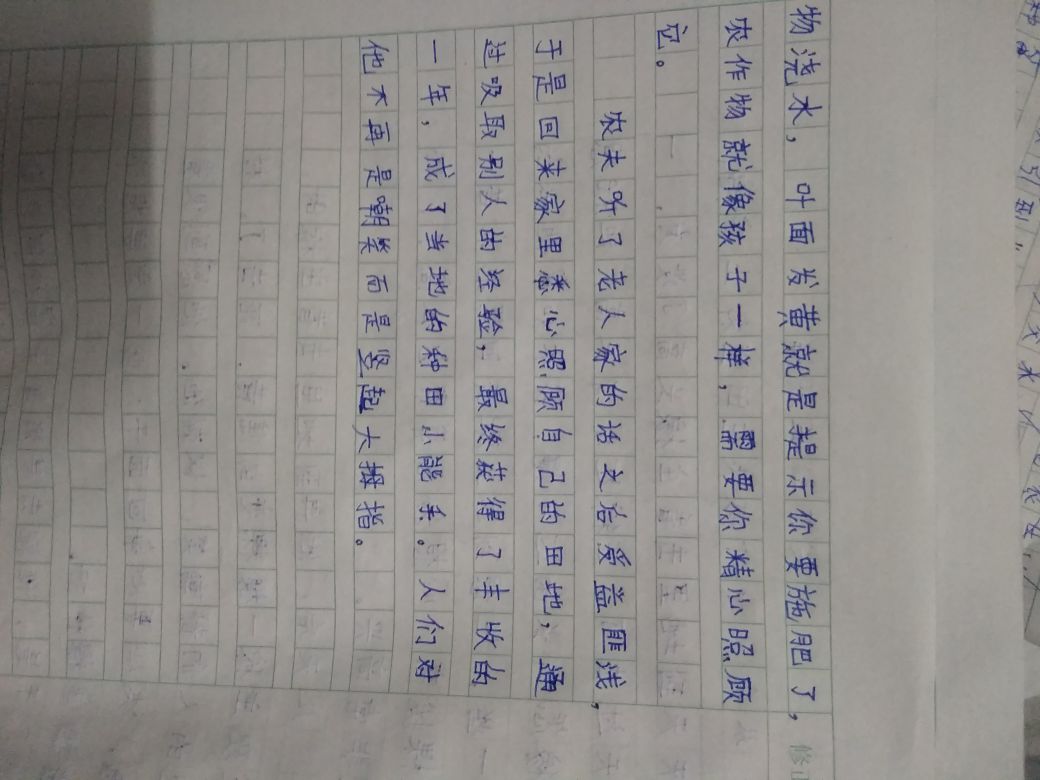 物浇水，叶面发黄就是提示你要施肥了，
农作物就像孩子一样，需要你精心照顾
它。
农夫听了老人家的话之后受益匪浅，
于是回来家里悉心照顾自己的田地，通
过吸取别人的经验，最终获得了丰收的
一年，成了当地的种田小能手。人们对
他不再是嘲笑而是竖起大拇指。